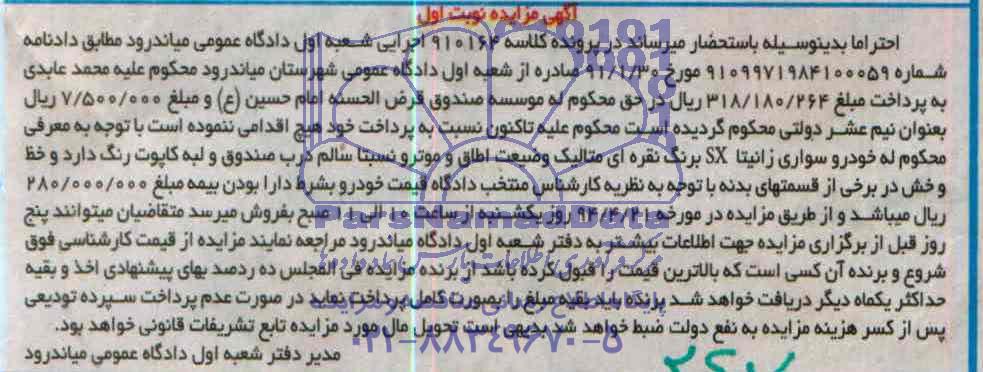 آگهی مزایده نوبت اول
احتراما بدینوسیله باستحضار میرساند در پرونده کلاسه ۹۱۰۱۶۴ اجرایی شعبه اول دادگاه عمومی میاندرود مطابق دادنامه
شماره ۹۱۰۹۹۷۱۹۸۴۱۰۰۰۵۹ مورخ ۹۱/۱/۳۰ صادره از شعبه اول دادگاه عمومی شهرستان میاندرود محکوم علیه محمد عابدی
به پرداخت مبلغ ۳۱۸/۱۸۰/۲۶۴ ریال در حق محکوم له موسسه صندوق قرض الحسنه امام حسین (ع) و مبلغ ۷/۵۰۰/۰۰۰ ریال
بعنوان نیم عشر دولتی محکوم گردیده است محکوم علیه تاکنون نسبت به پرداخت خود هیچ اقدامی ننموده است با توجه به معرفی
محکوم له خودرو سواری زانیتا SX برنگ نقره ای متالیک وضیعت اطاق و موترو نسبتا سالم درب صندوق و لبه کاپوت رنگ دارد و خط
و خش در برخی از قسمتهای بدنه با توجه به نظریه کارشناس منتخب دادگاه قیمت خودرو بشرط دارا بودن بیمه مبلغ ۲۸۰/۰۰۰/۰۰۰
ریال میباشد و از طریق مزایده در مورخه ۹۴/۴/۲۱ روز یکشنبه از ساعت ۱۰ الی ۱۱ صبح بفروش میرسد متقاضیان میتوانند پنج
روز قبل از برگزاری مزایده جهت اطلاعات بیشتر به دفتر شعبه اول دادگاه میاندرود مراجعه نمایند مزایده از قیمت کارشناسی فوق
شروع و برنده آن کسی است که بالاترین قیمت را قبول کرده باشد از برنده مزایده فی المجلس ده ردصد بهای پیشنهادی اخذ و بقیه
حداکثر یکماه دیگر دریافت خواهد شد برنده باید بقیه مبلغ را بصورت کامل پرداخت نماید در صورت عدم پرداخت سپرده تودیعی
پس از کسر هزینه مزایده به نفع دولت ضبط خواهد شد بدیهی است تحویل مال مورد مزایده تابع تشریفات قانونی خواهد بود.
مدیر دفتر شعبه اول دادگاه عمومی میاندرود
ParsNamadData
۰۲۱-۸۸۳۴۹۶۷۰-۵